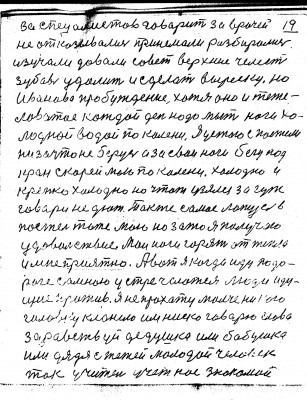 за специалистов говарит за врачей 19
не отказывалих принемали разбиралих
изучали довали совет верхние челюст
зубах удолит и сделат вырезку, но
Иванова пробуждение, хотя оно и тяже-
лов этае каждой ден надо мыт ноги хо-
лодной водой по калени, я детою с постели
низачто не берус а за свои ноги бегу под
кран скарей мою по калени, холодно и
крепко холодно но что взялся за гуж
говари не дюж. такте самое ложус в
постел тоже мою но зато я палучаю
удовольствие, Мои ноги горят от тепла
и мне приятно. А вот я когда иду по до-
роге сомною устречаются люди иду-
щие вражив, я не прохажу молче но
голову клоню или ниско говарю слова
здраветвуй дедушка или бабушка
или дядя с тежей молодой человек
так учител учет нас знакомой